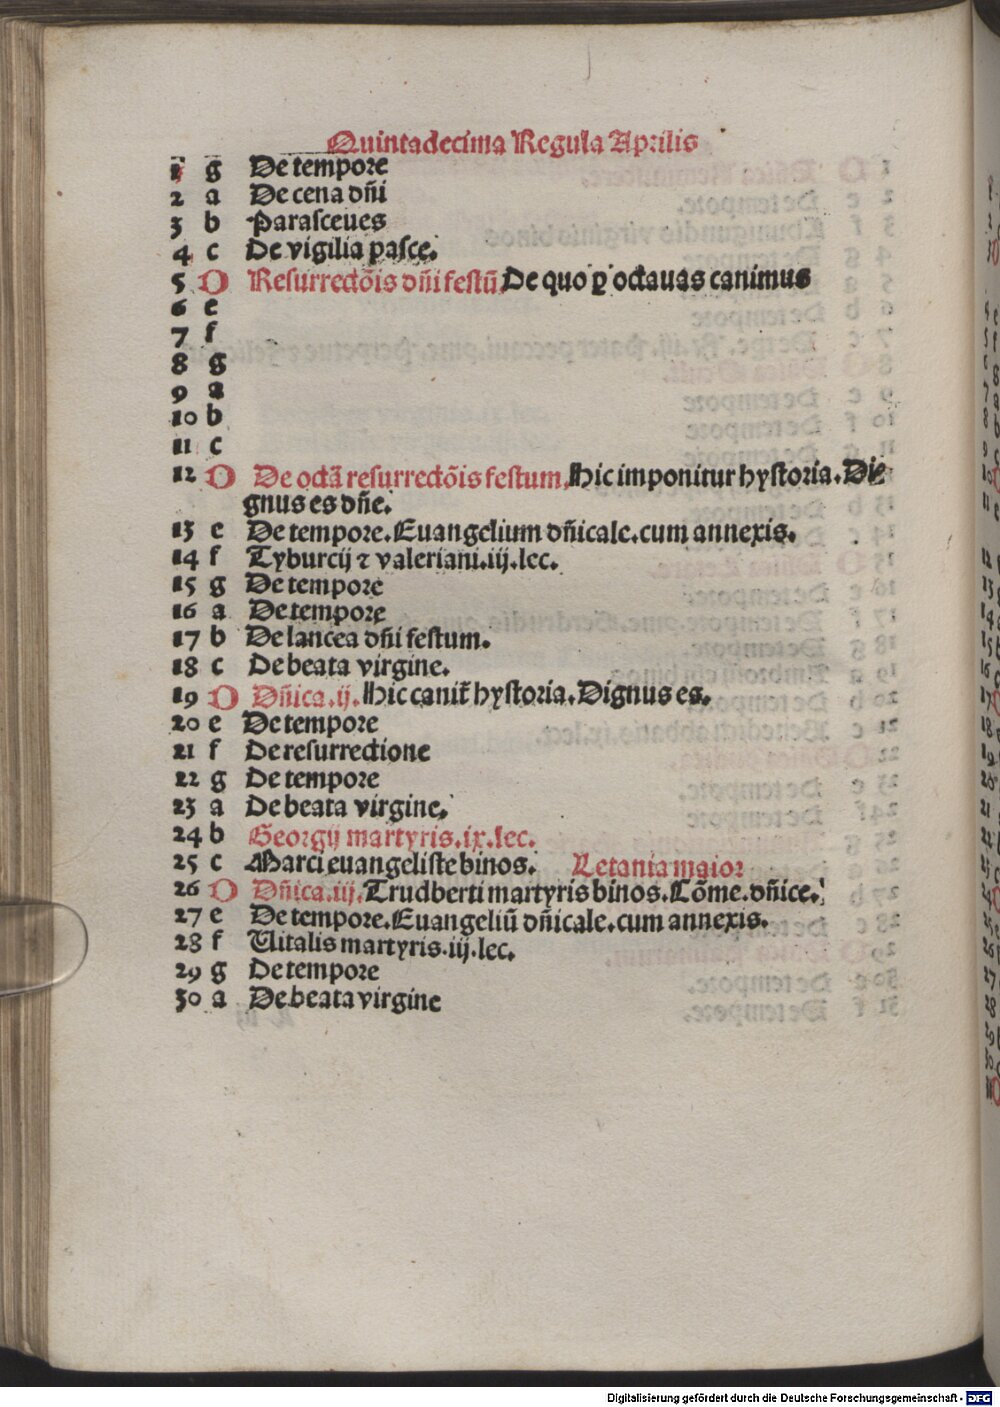 Quintadecima Regula Aprilis
1 g De tempore
2 a De cena dn̄i
3 b Parasceues
4 c De vigilia pasce.
5 D Resurrectōis dn̄i festū. De quo ꝑ octauas canimus
6 e
7 f
8 g
9 a
10 b
11 c
12 D De octā resurrectōis festum. Hic imponitur hystoria. Di⸗
gnus es dn̄e.
13 e De tempore. Euangelium dn̄icale. cum annexis.
14 f Tyburcij ⁊ valeriani. iij. lec.
15 g De tempore
16 a De tempore
17 b De lancea dn̄i festum.
18 c De beata virgine.
19 D Dn̄ica. ij. Hic canit̄ hystoria. Dignus es.
20 e De tempore
21 f De resurrectione
22 g De tempore
23 a De beata virgine.
24 b Georgij martyris. ix. lec.
25 c Marci euangeliste binos. Letania maior
26 D Dn̄ica. iij. Trudberti martyris binos. Cōme. dn̄ice.
27 e De tempore. Euangeliū dn̄icale. cum annexis.
28 f Uitalis martyris. iij. lec.
29 g De tempore
30 a De beata virgine
Digitalisierung gefördert durch die Deutsche Forschungsgemeinschaft - DFG